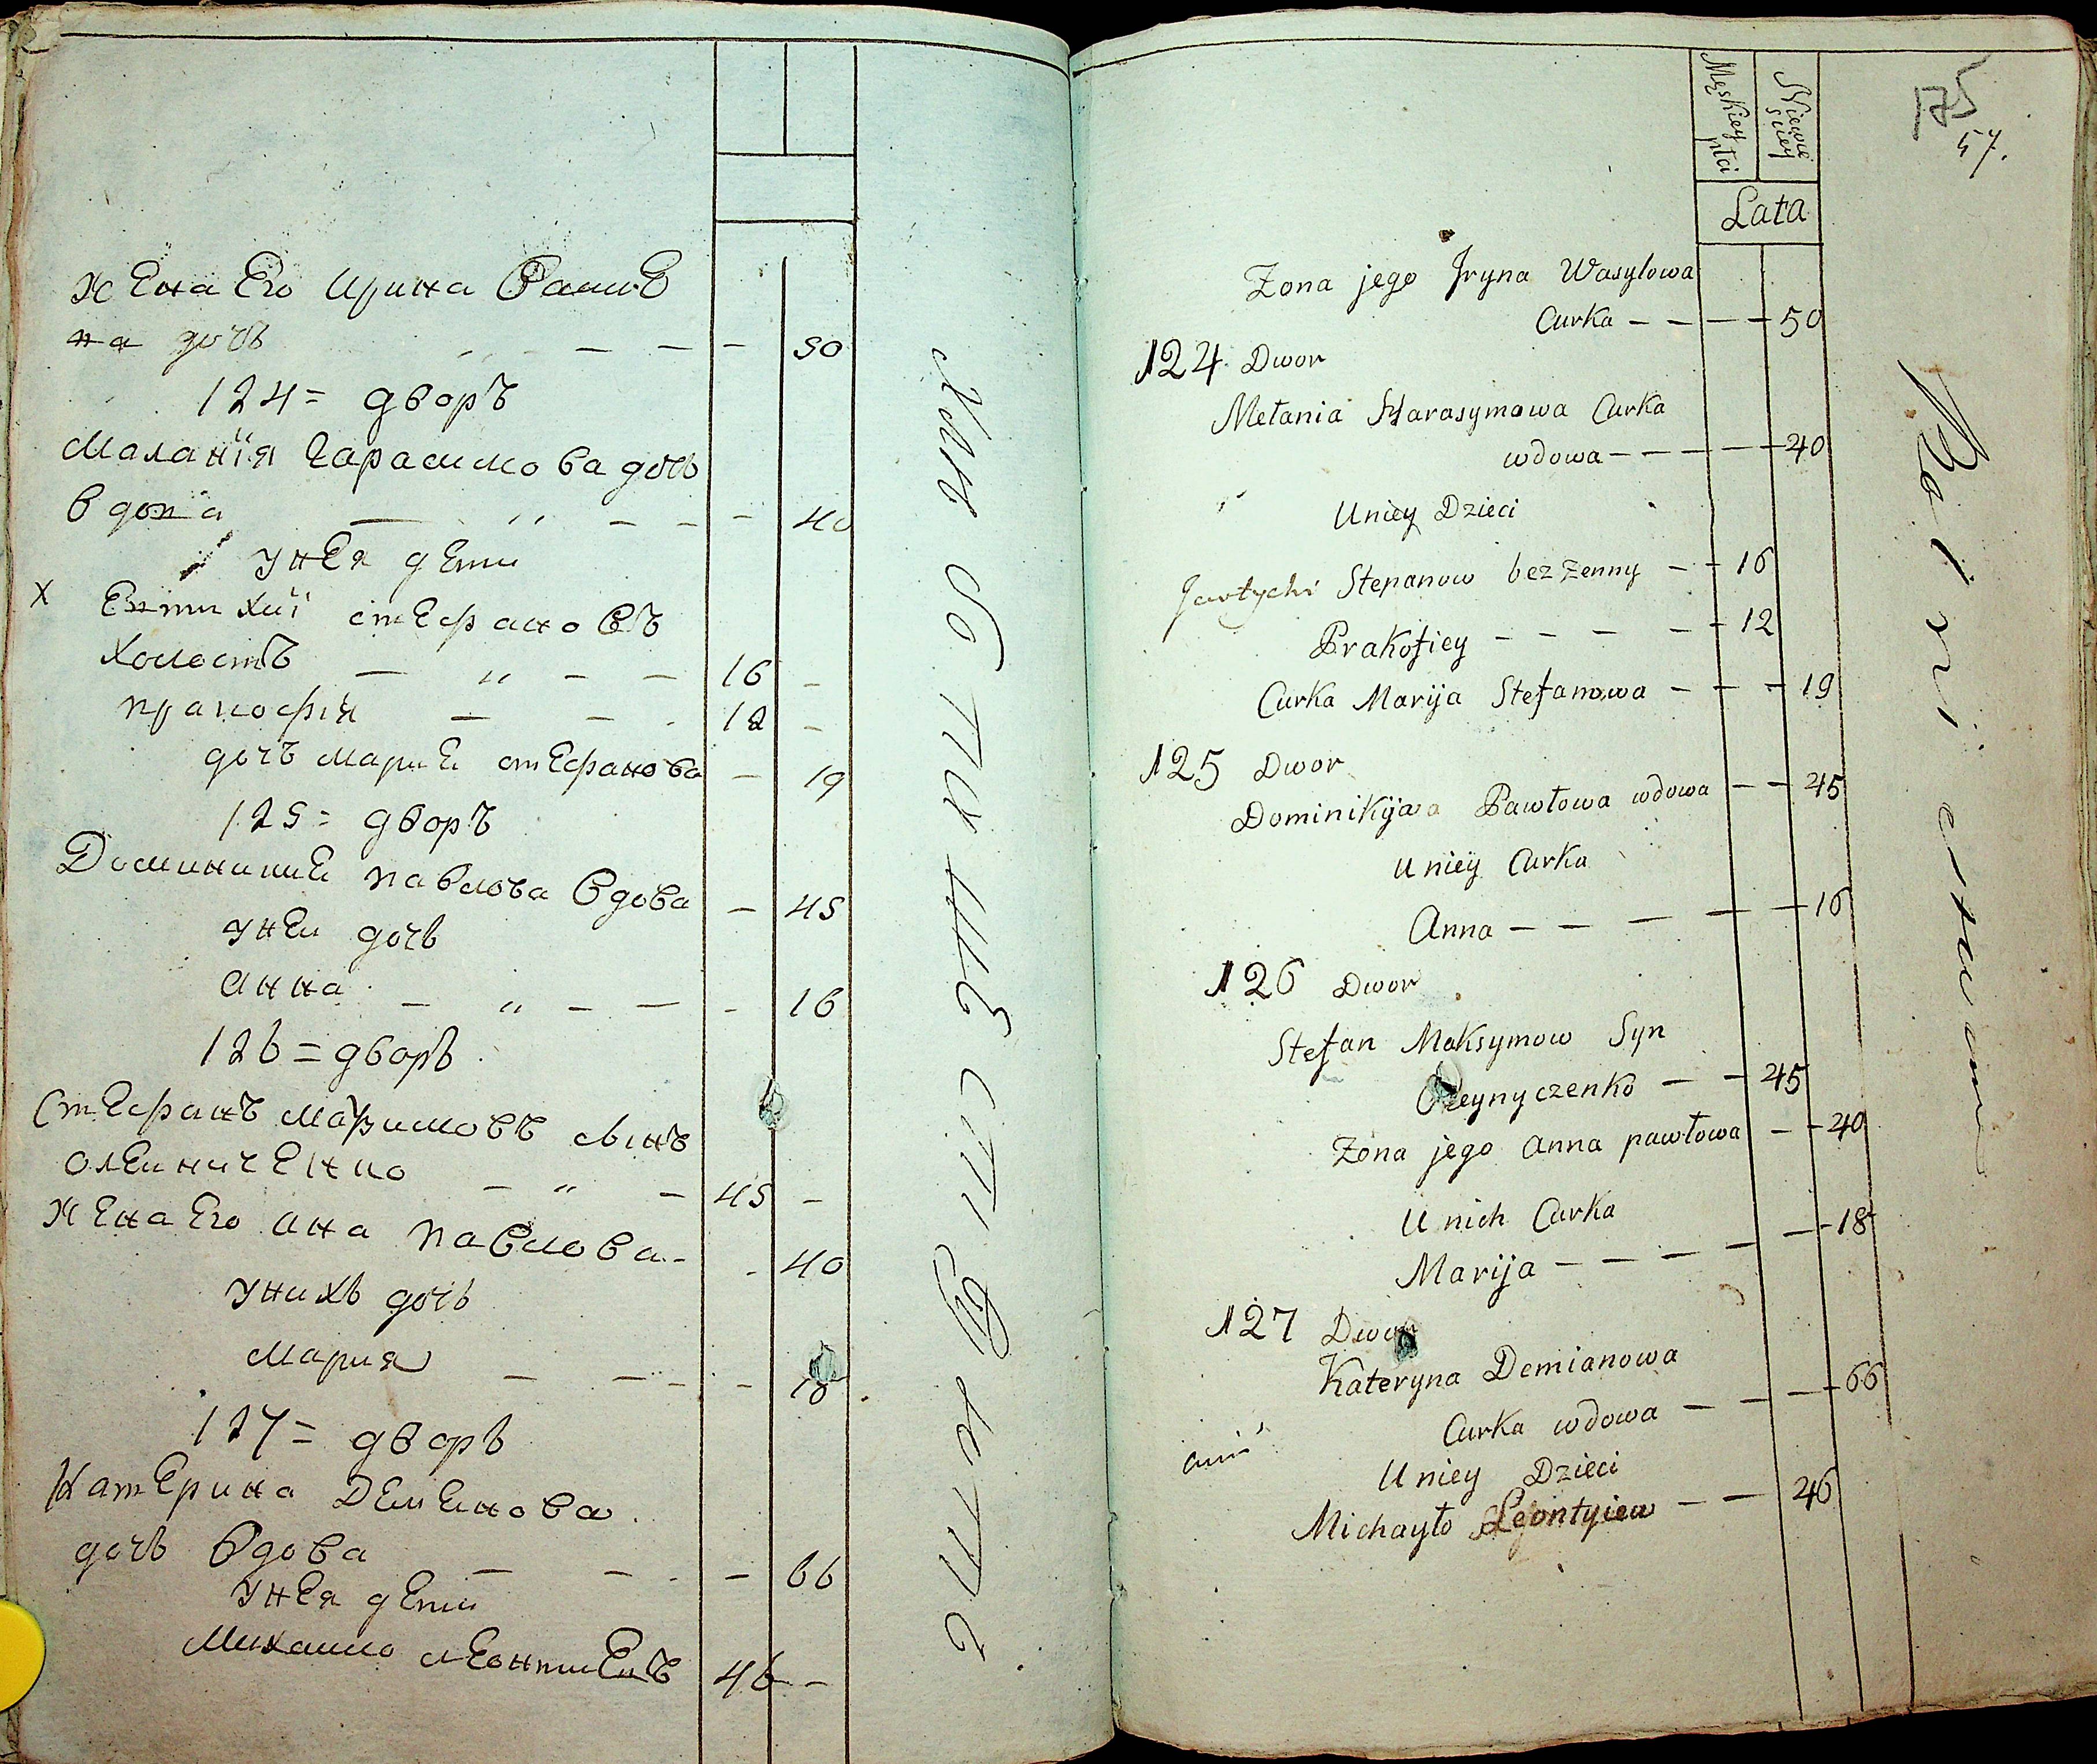 жена его ирина василе
на дочь - - - - 50
124= дворъ
Маланїя гарасимова дочь
вдова - " - - - 40
унея дети
х Евтихий стефановъ
холостъ - " - - 16 -
пракофия - - - 12 -
дочь мария стефанова - 19
125= дворъ
Доминикия павлова вдова - 45
унеи дочь
анна - " - - - 16
126= дворъ
стефанъ мазимовъ сынъ
олеиниченко - " - 45 -
жена его ана павлова - - 40
унихъ дочь
Мария - - - - 18
127= дворъ
Катерина Деменова
дочь вдова - - - - 66
унея дети
Михаило леонтиевъ 46 -
Męskiey płci
Niewieściey
Lata
175
57.
Zona jego Jryna Wasylowa
Curka - - - - 50
124 Dwor
Mełania Harasymowa Curka
wdowa - - - - - 40
Uniey Dzieci
Stepanow bezżenny - - 16
Prakofiey - - - - - 12
Curka Marija Stefanowa - - - 19
125 Dwor
Dominikija Pawłowa wdowa - - 45
Uniey Curka
Anna - - - - - 16
126 Dwor
Stefan Maksymow Syn
Oleynyczenko - - 45
Zona jego Anna pawłowa - - 40
U nich Curka
Marija - - - - - - 18
127 Dwor
Kateryna Demianowa
Curka wdowa - - - - 66
Uniey Dzieci
Michayło Leontyiew - - 46